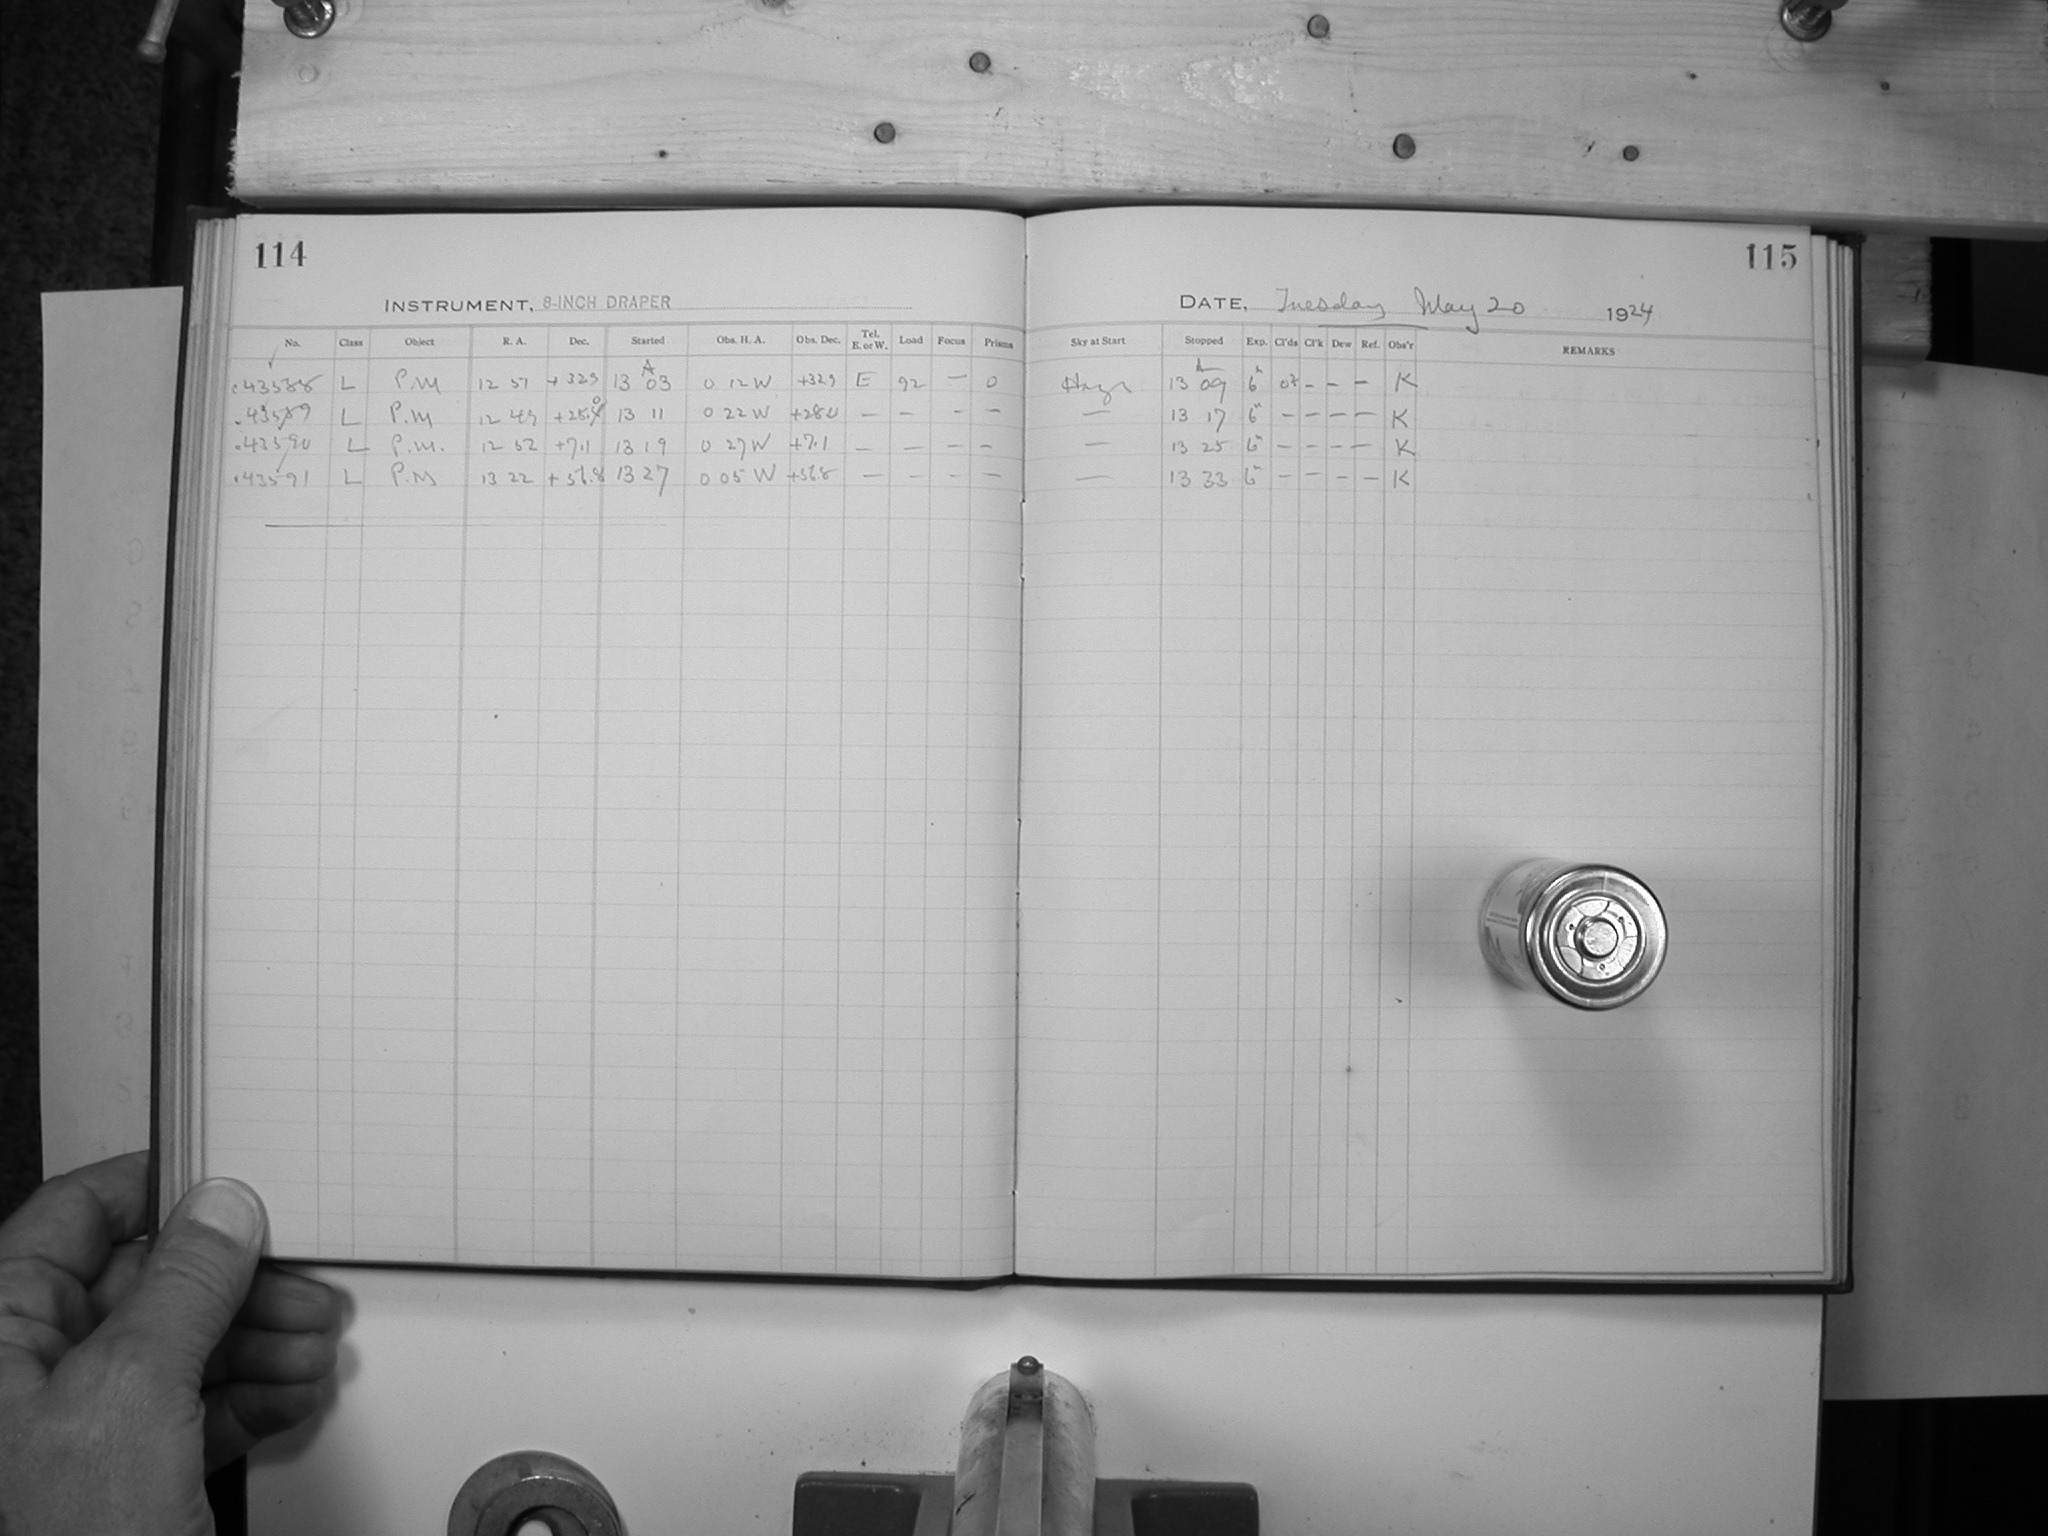 114
INSTRUMENT, 8-INCH DRAPER
No. Class Object R. A. Dec. Started Obs. H. A. Obs. Dec. Tel. E. or W. Load Focus Prisms
.43588 L P.M 12 51 +32.9 13 03 0 12 W +32.9 E 92 — 0
.43589 L P.M 12 49 +28.0 13 11 0 22 W +28.0 — — — —
.43590 L P.M. 12 52 +7.1 13 19 0 27 W +7.1 — — — —
.43591 L P.M 13 22 +56.8 13 27 0 05 W +56.8 — — — —
115
DATE, Tuesday May 20 1924
Sky at Start Stopped Exp. Cl'ds Cl'k Dew Ref. Obs'r REMARKS
13 09 6m — — — K
— 13 17 6m — — — — K
— 13 25 6m — — — — K
— 13 33 6m — — — — K